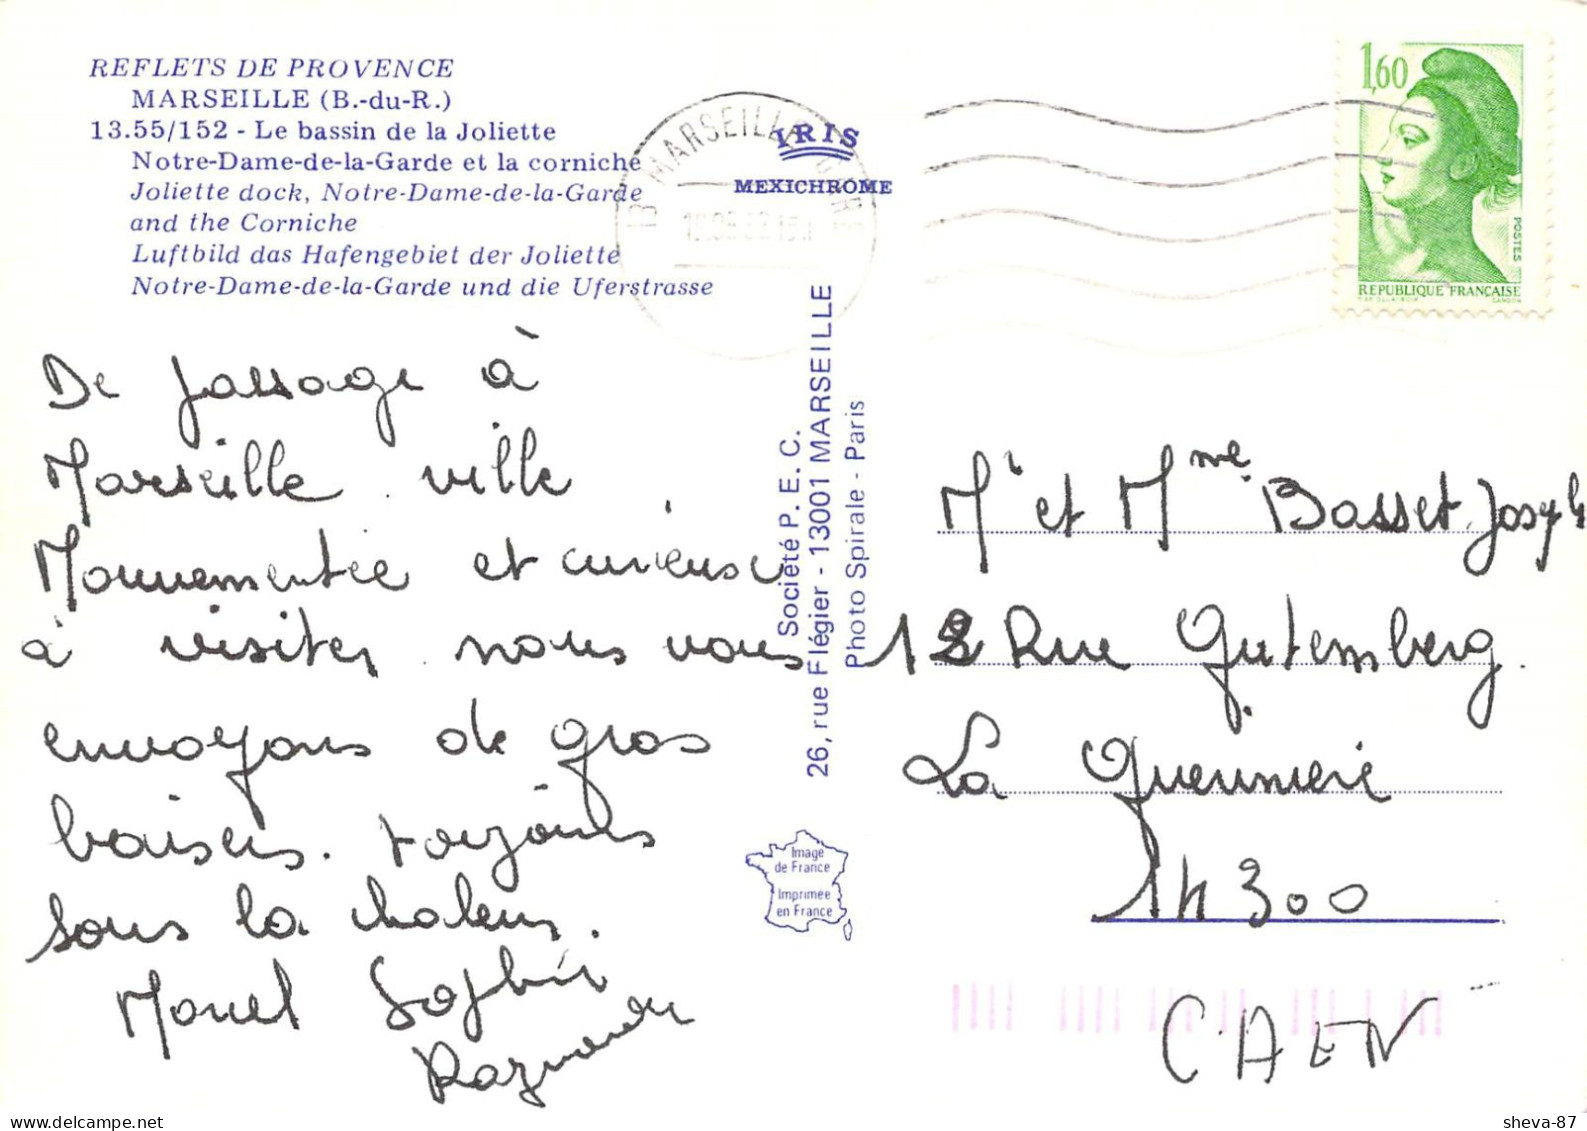 REFLETS DE PROVENCE
MARSEILLE (B.-du-R.)
13.55/152 - Le bassin de la Joliette
Notre-Dame-de-la-Garde et la corniche
Joliette dock, Notre-Dame-de-la-Garde
and the Corniche
Luftbild das Hafengebiet der Joliette
Notre-Dame-de-la-Garde und die Uferstrasse
IRIS
MEXICHROME
13 MARSEILLE
1,60
POSTES
REPUBLIQUE FRANÇAISE
GANDON
De passage à
Marseille ville
Mouvementée et curieuse
à visiter nous vous
envoyons de gros
baisers. toujours
sous la chaleur.
Sophie
Société P. E. C.
26, rue Flégier - 13001 MARSEILLE
Photo Spirale - Paris
Image
de France
Imprimée
en France
Mr et Mme Basset Joseph
12 Rue Gutemberg.
La Guerinière
14 300
CAEN
sheva-87